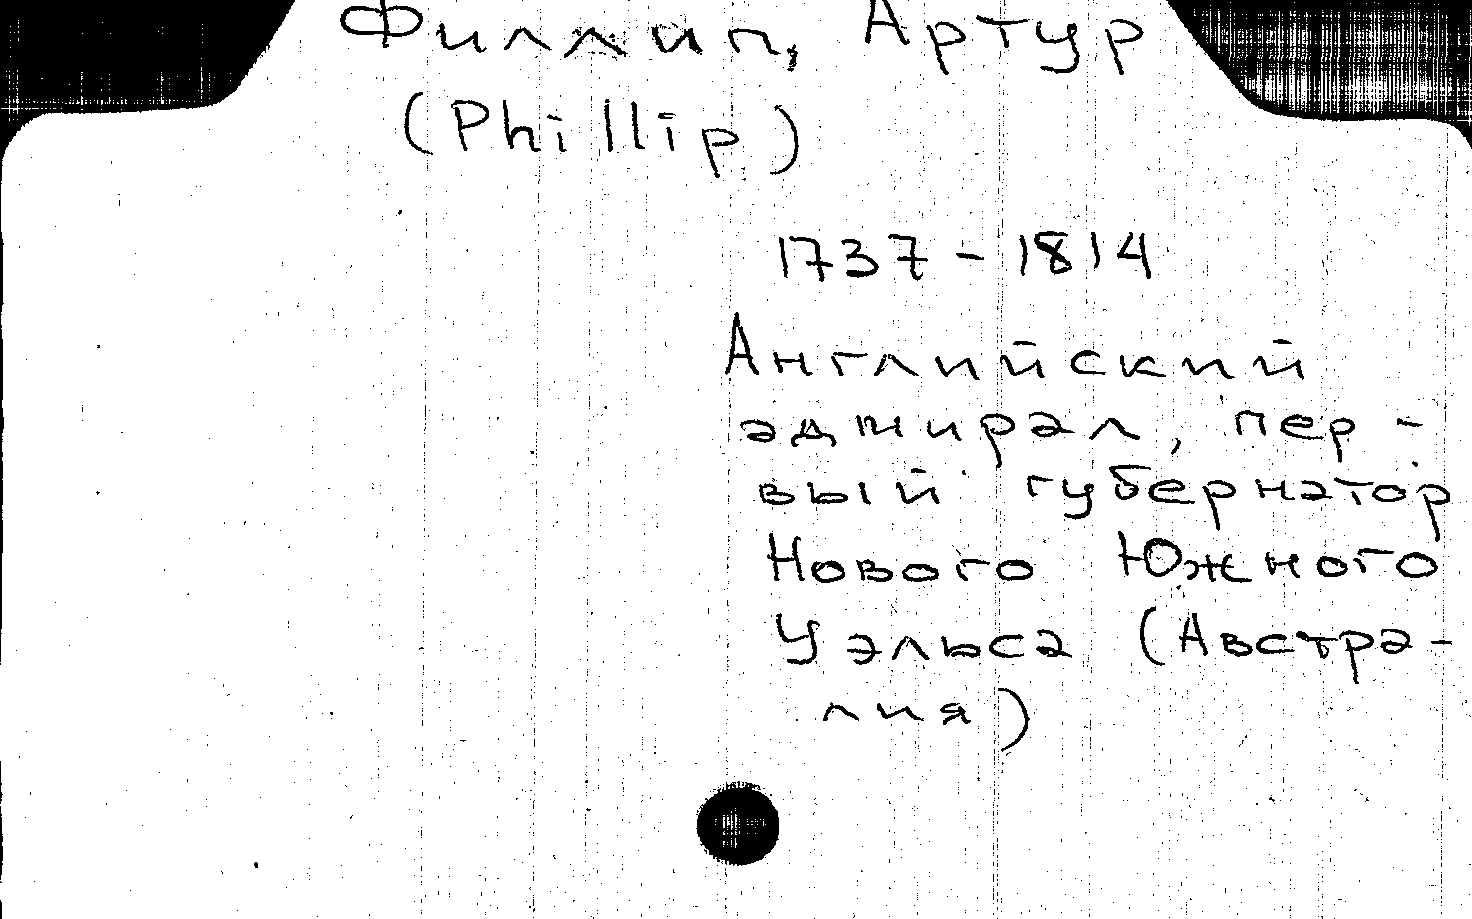 Филлип, Артур
(Phillip)
1737-1814
Английский
адмирал, пер-
вый губернатор
Нового Южного
Уэльса (Австра-
лия)